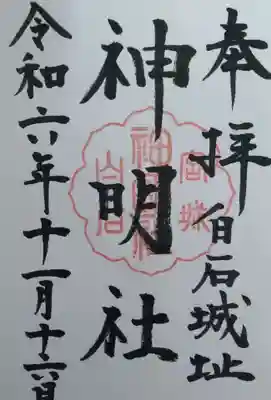 奉拝 白石城址
神明社
令和六年十一月十六日